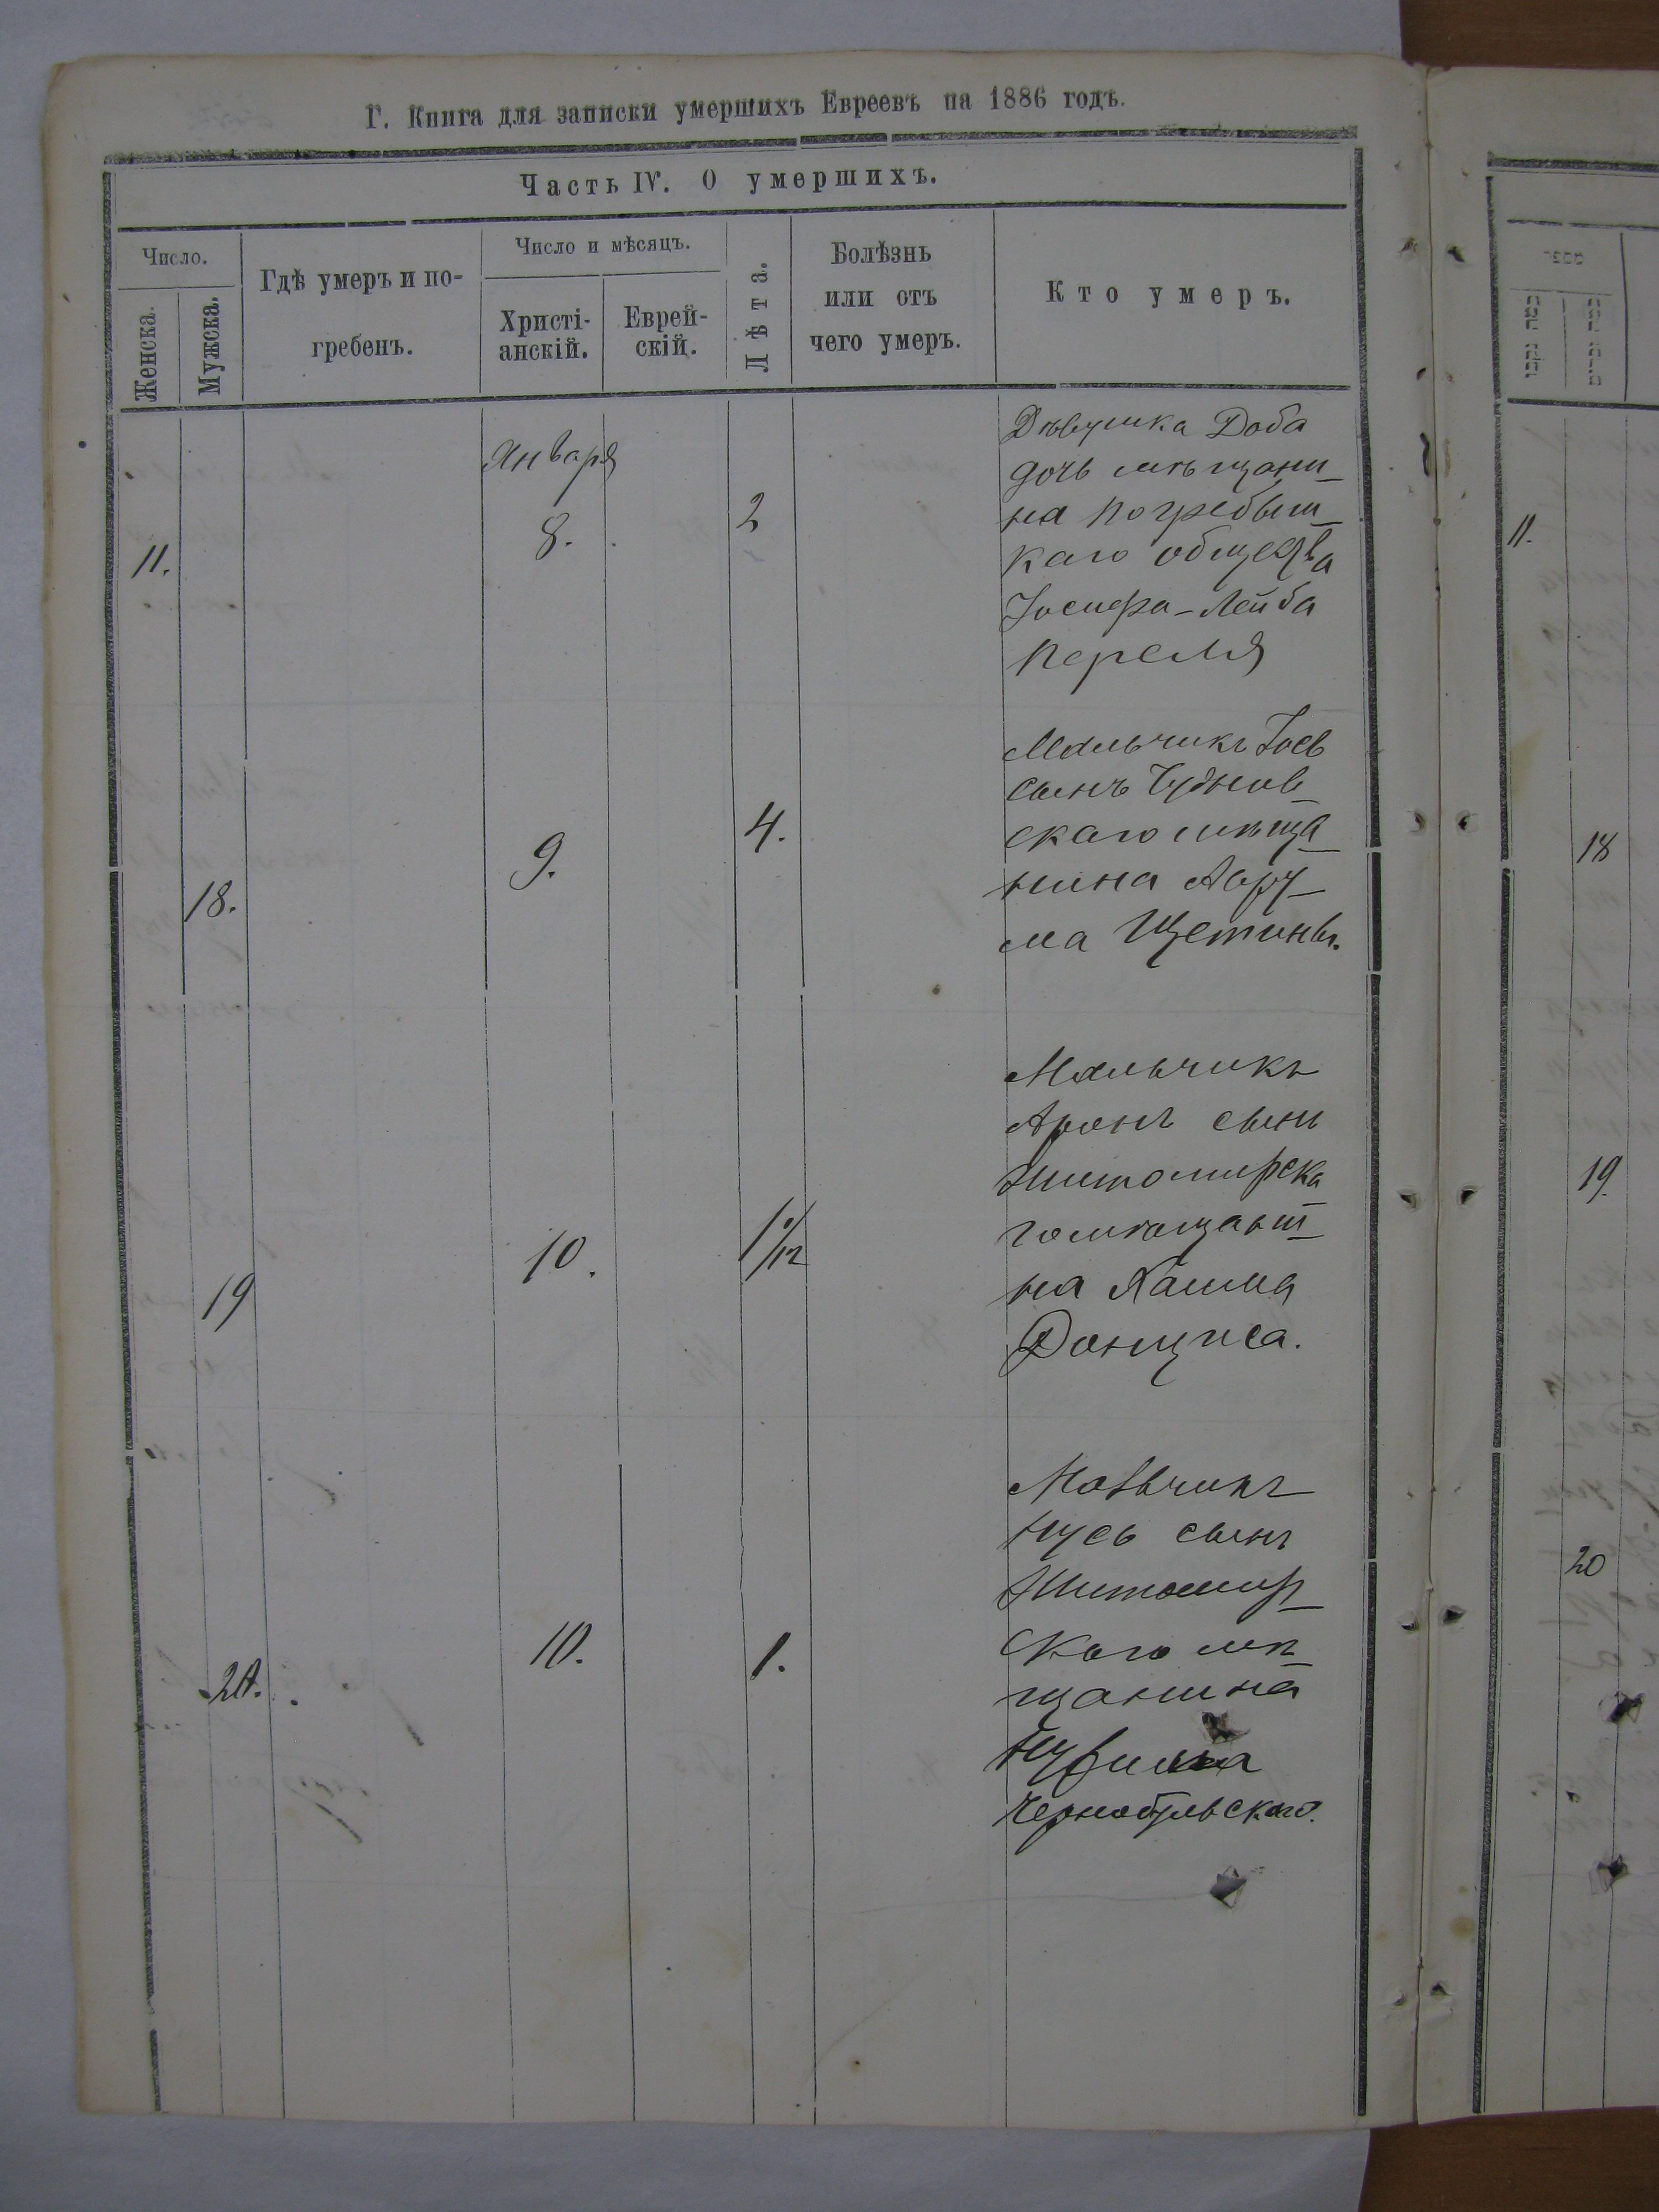 Г. Книга для записки умершихъ Евреевъ на 1886 годъ.
Часть IV. О умершихъ.
Число.
Женска.
Мужска.
Гдѣ умеръ и по-
гребенъ.
Число и мѣсяцъ.
Христі-
анскій.
Еврей-
скій.
Лѣта.
Болѣзнь
или отъ
чего умеръ.
Кто умеръ.
11.
Января
8.
2
Дѣвушка Доба
дочь мѣщани-
на Погребыш-
каго общества
Іосифа-Лейба
Переля
18.
9.
4.
Мальчикъ Іось
сынъ Чуднов-
скаго мѣща-
нина Авру-
ма Щетины.
19
10.
1/12
Мальчикъ
Аронъ сынъ
Житомирска
го мѣщани-
на Хаима
20.
10.
1.
Мальчикъ
Нусь сынъ
Житомир-
скаго мѣ-
щанина
Чернобыльскаго.
11.
18
19.
20